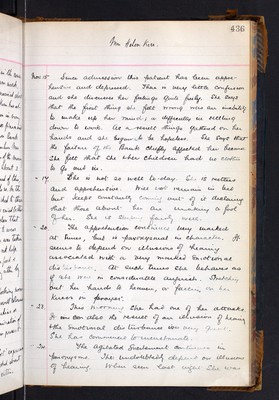 436
Mrs Helen Kerr.
Nov. 15 Since admission this patient has been appre-
hensive and depressed. There is very little confusion
and she discusses her feelings quite freely. She says
that the first thing she felt wrong was an inability
to make up her mind; a difficulty in settling
down to work. As a result things gathered on her
hands and she began to be hopeless. She says that
the failure of the Bank chiefly affected her because
she felt that the other children had no clothes
to go out in.
- 17. She is not so well to-day. She is restless
and apprehensive. Will not remain in bed
but keeps constantly coming out of it declaring
that those about her are making a fool
of her. She is fairly well.
- 20. The apprehension continues very marked
at times, but is paroxysmal in character. It
seems to depend on illusions of hearing
associated with a very marked emotional
disturbance. At such times her behaviour is
as she were in considerable anguish. Clutching
out her hands to heaven, or falling on her
knees in prayer.
- 23. This morning she had one of her attacks.
It was also the result of an illusion of hearing
& the emotional disturbance was very great.
She has commenced to menstruate.
- 30. The agitated excitement continues in
paroxysms. The undoubtedly depend on illusions
of hearing. When seen last night she was